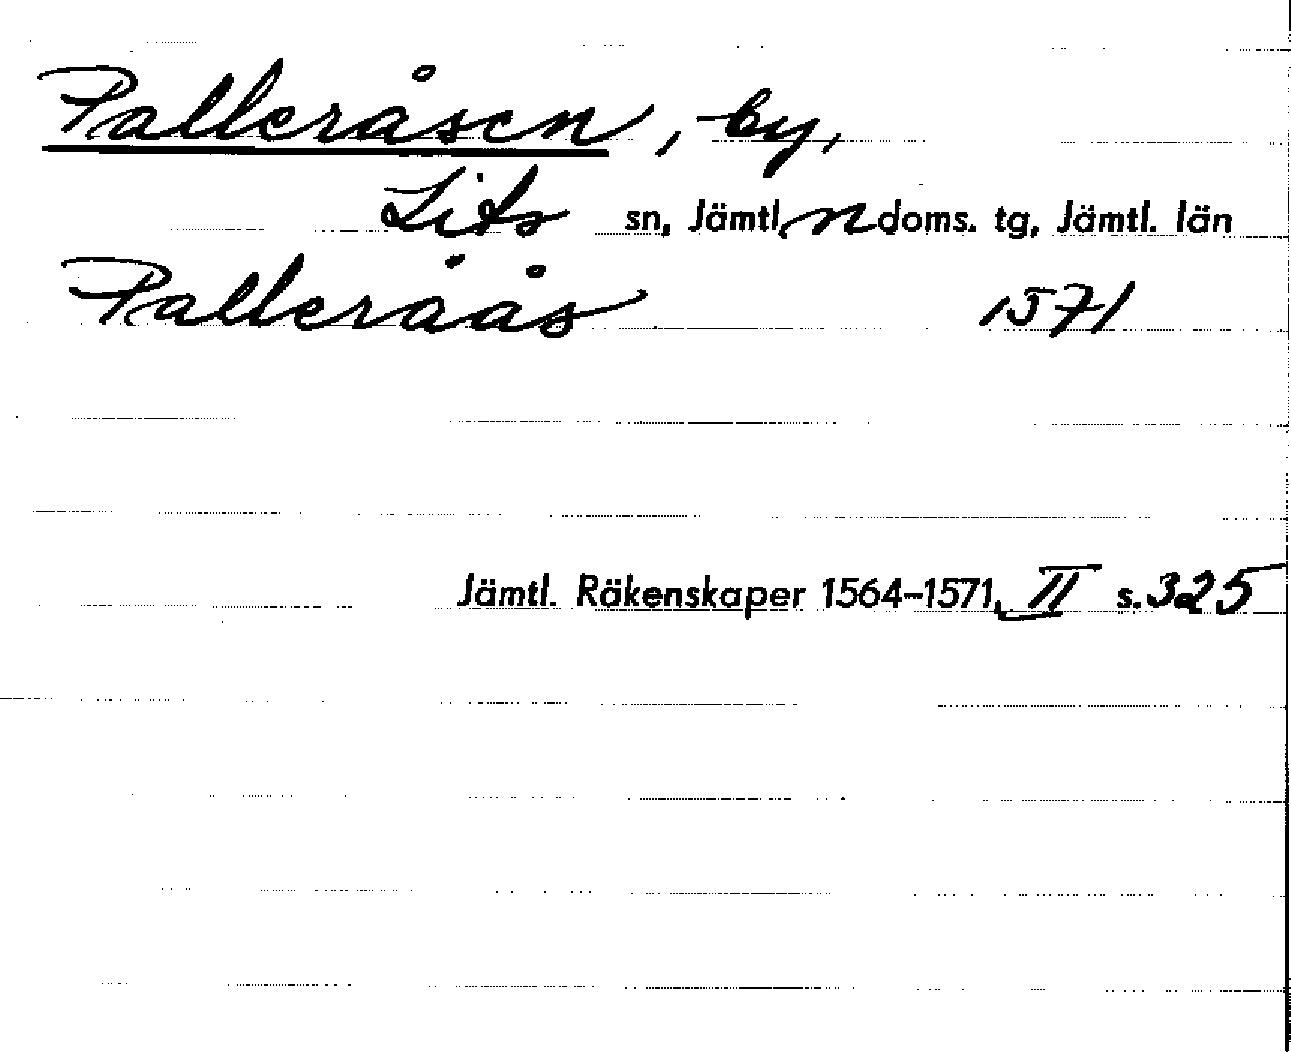 Palleråsen, by,
Lits sn, Jämtl. n doms. tg, Jämtl. län
Palleråås 1571
Jämtl. Räkenskaper 1564-1571, II s. 325